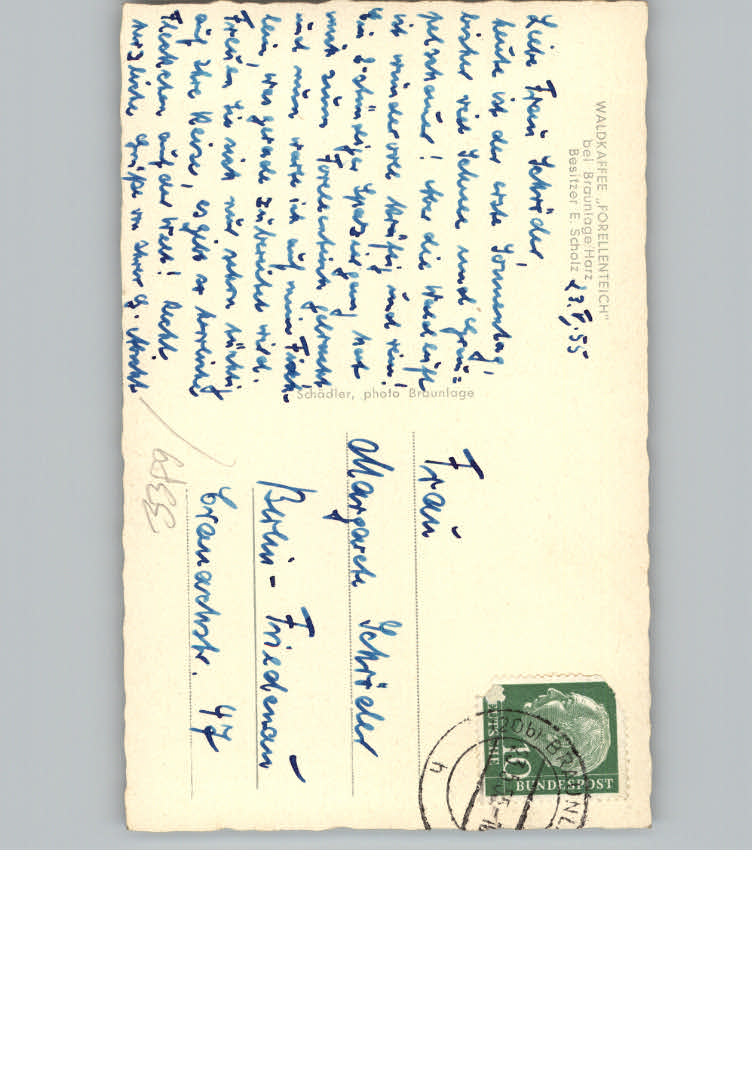 WALDKAFFEE „FORELLENTEICH"
bei Braunlage/Harz
Besitzer E. Scholz
23.V.55
Liebe Frau Schröder!
heute ist der erste Sonnentag,
bisher viel Schnee und Grau=
pelschauer! Aber die Waldluft
ist wundervoll kräftig und rein!
Ein 2 stündiger Spaziergang hat
mich zum Forellenteich gebracht
und nun warte ich auf mein Fisch-
lein, was gerade zubereitet wird.
Freuen Sie sich nur schon tüchtig
auf Ihre Reise, es gibt so herrliche
Fleckchen auf der Welt! Recht
herzliche Grüße von Ihrer G.
Schädler, photo Braunlage
Frau
Margarete Schröder
Berlin-Friedenau
Cranachstr. 47
3379
10
PFENNIG
BUNDESPOST
(20b) BRAUNL
h